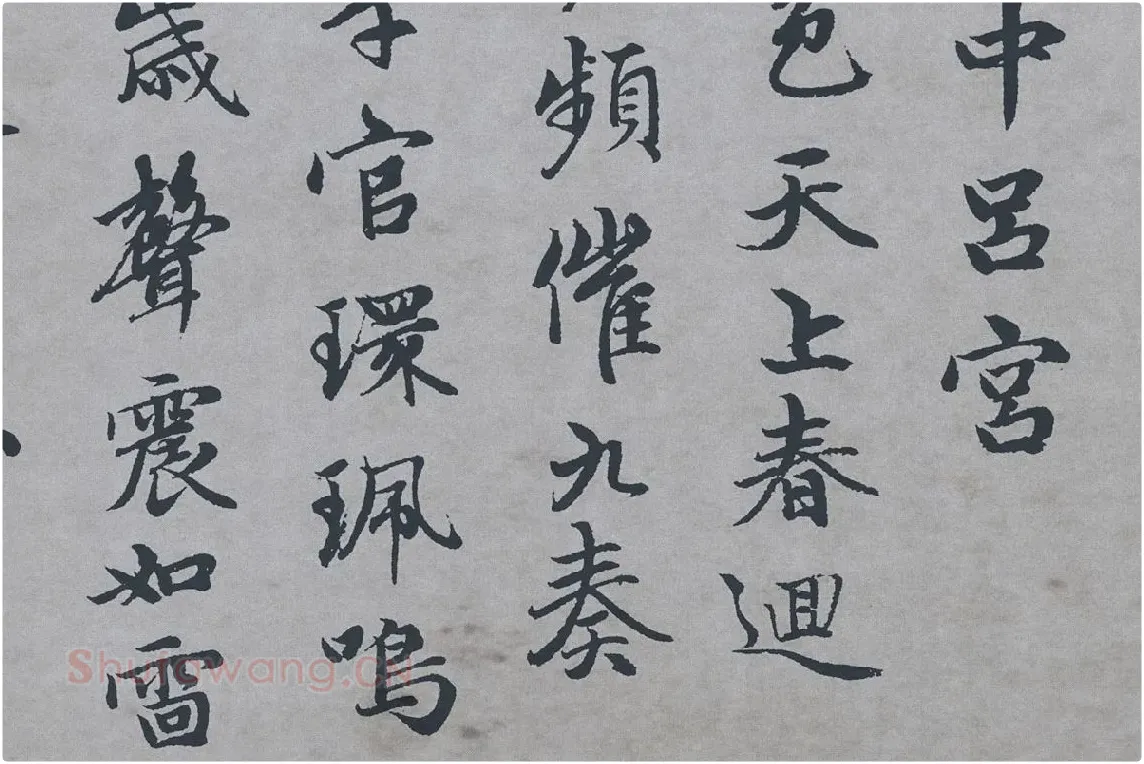 中呂宮
色天上春迴
頻催九奏
子官環珮鳴
歲聲震如雷
Shufawang.CN